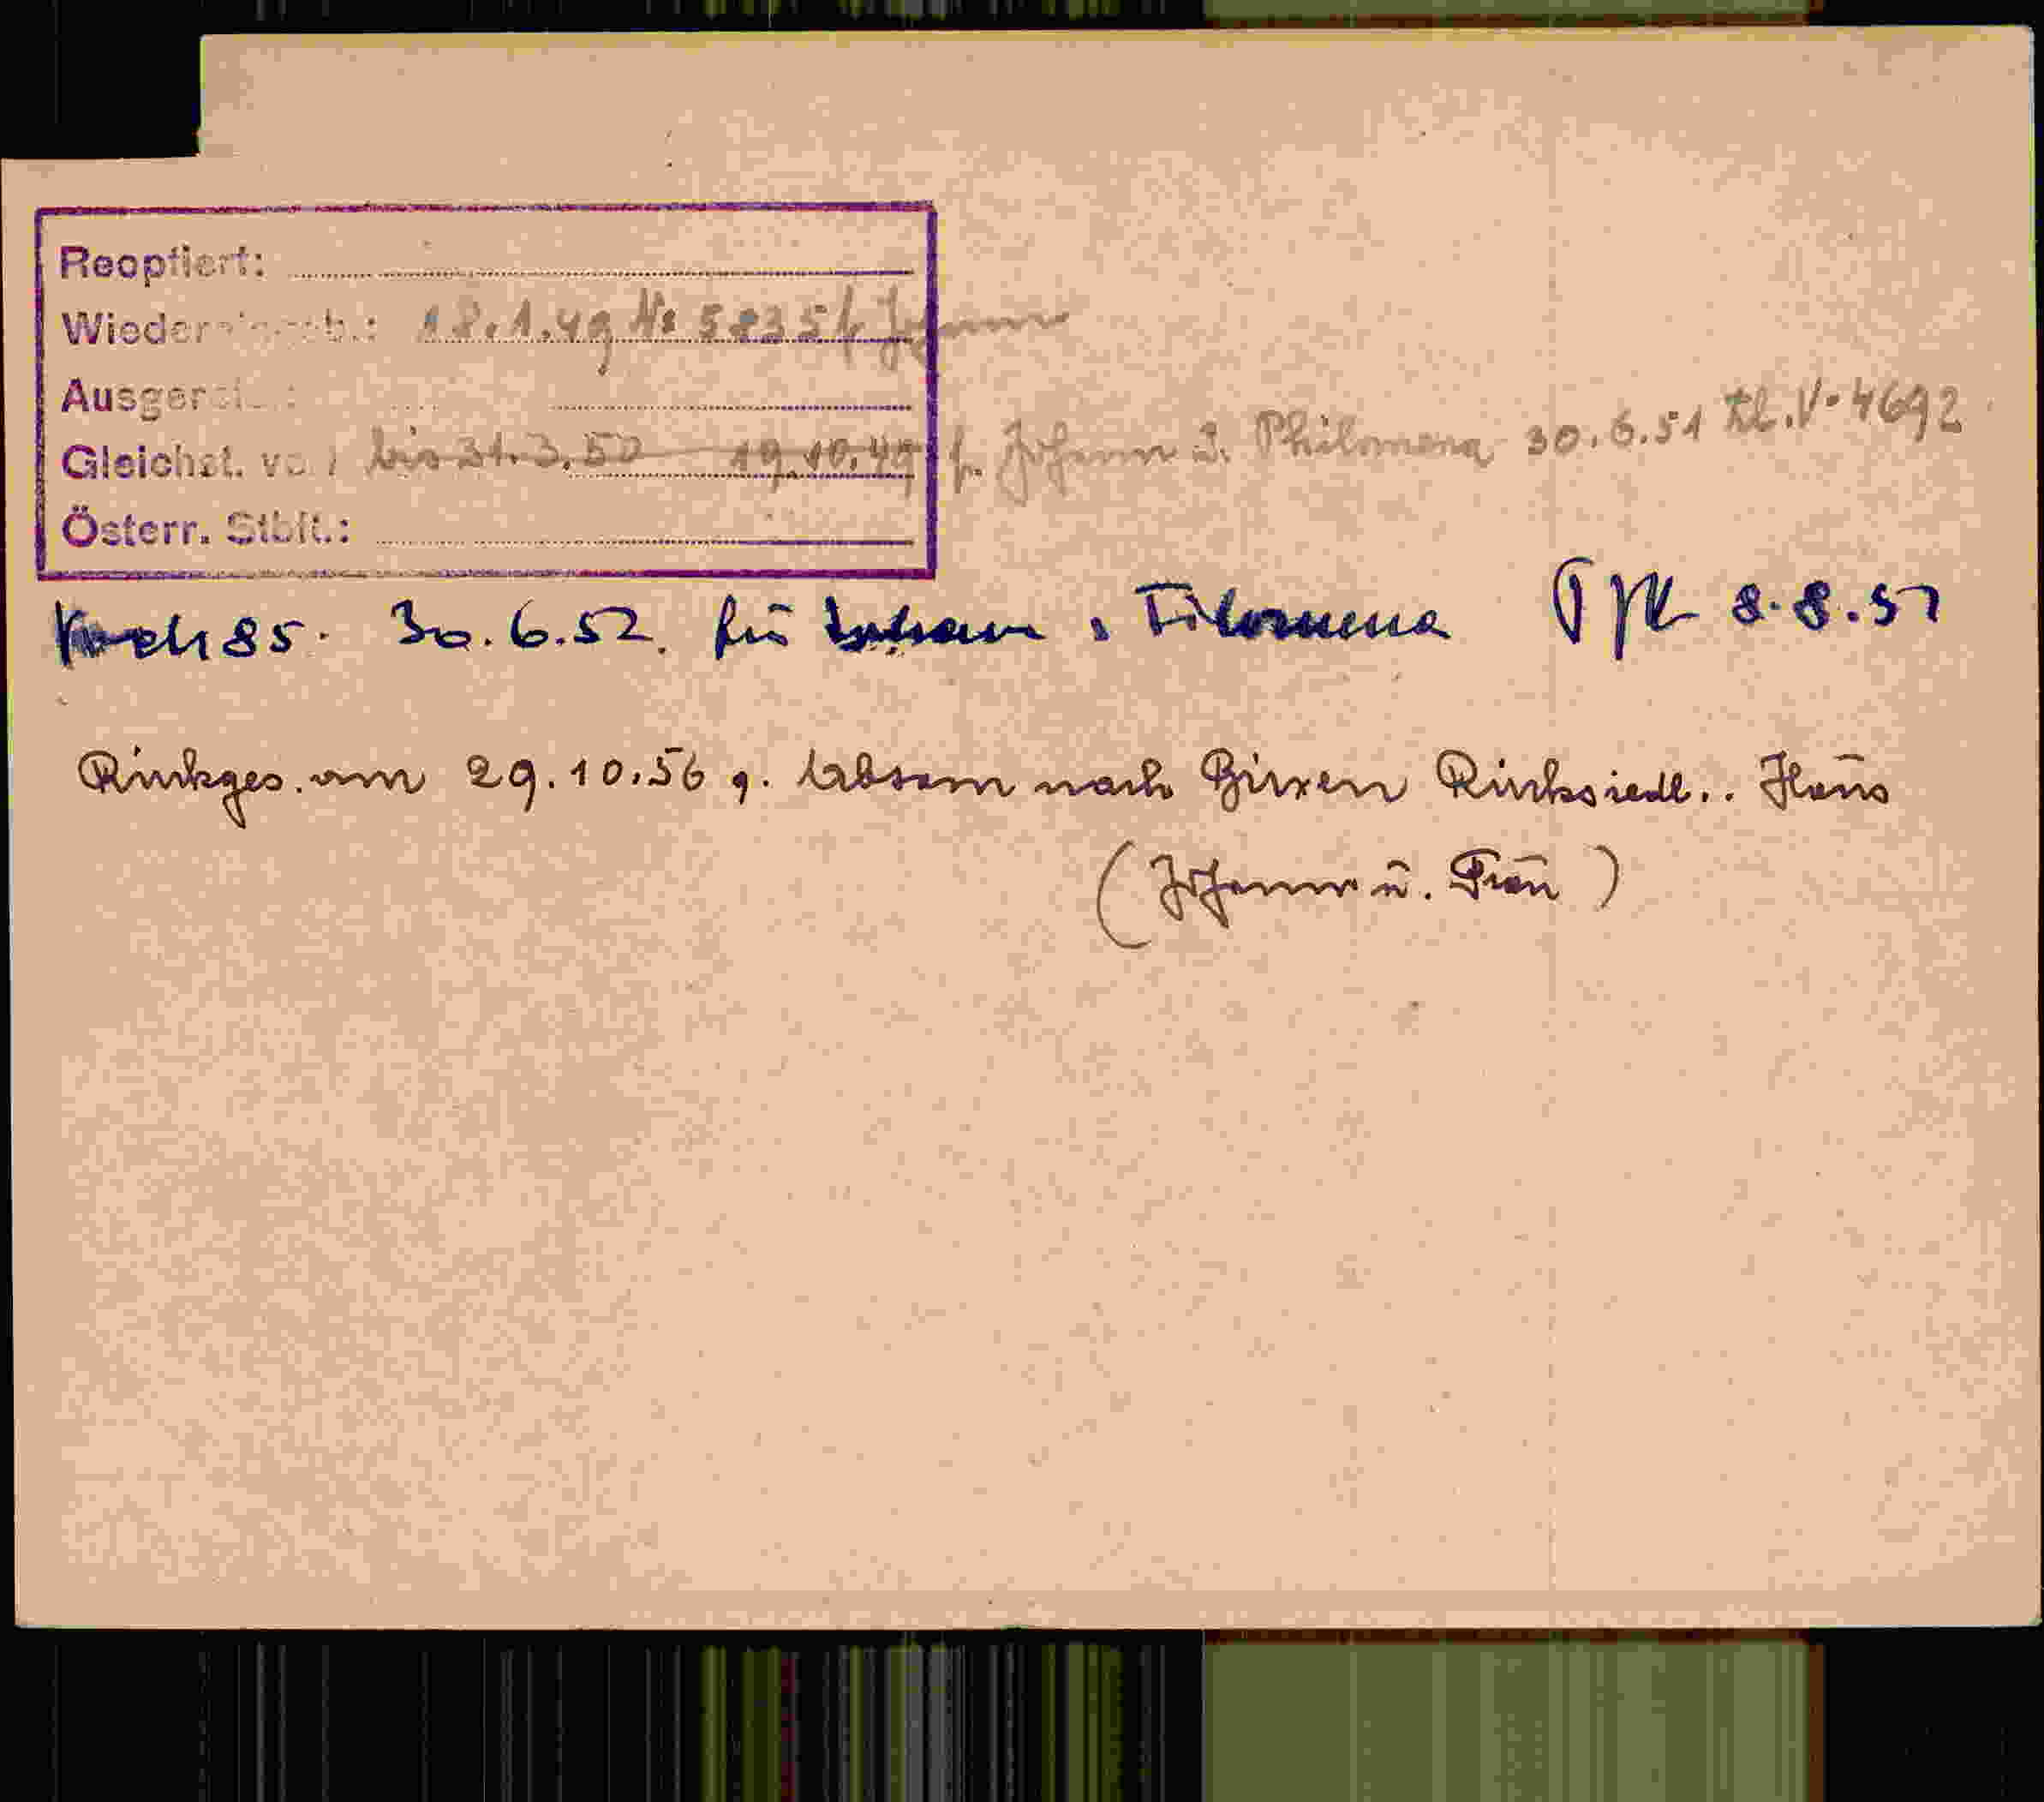 Reoptiert:
Wiedereingeb.: 18.1.49 No 58354 Johann
Ausgereist:
Gleichst. vom bis 31.3.50 19.10.49 f. Johann u. Philomena 30.6.51 Kl. V-4692
Österr. Stbft.:
85. 30.6.52. für Johann u Filomena 8.8.51
Rückges. am 29.10.56 v. Absam nach Brixen Rücksiedl.. Haus
(Johann u. Frau)